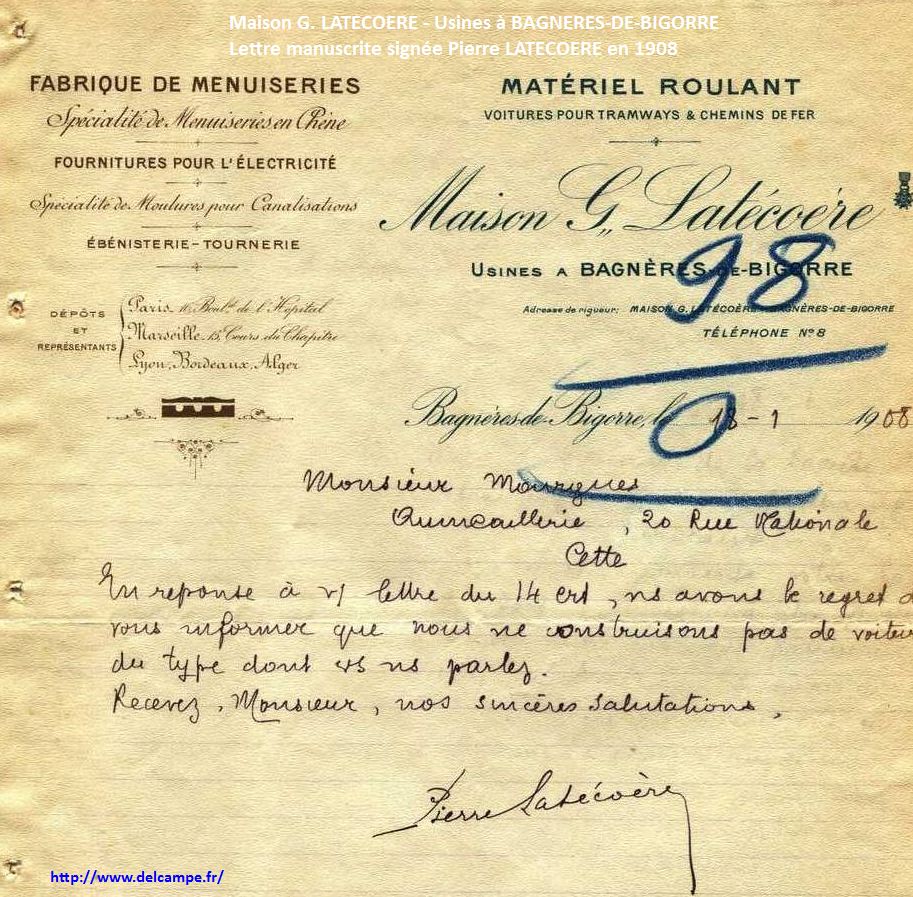 Maison G. LATECOERE - Usines à BAGNERES-DE-BIGORRE
Lettre manuscrite signée Pierre LATECOERE en 1908
FABRIQUE DE MENUISERIES
Spécialité de Menuiseries en Chêne
FOURNITURES POUR L'ÉLECTRICITÉ
Spécialité de Moulures pour Canalisations
ÉBÉNISTERIE - TOURNERIE
DÉPÔTS
ET
REPRÉSENTANTS
Paris, Bould. de l'Hôpital
Marseille, 15, Cours du Chapitre
Lyon, Bordeaux, Alger
MATÉRIEL ROULANT
VOITURES POUR TRAMWAYS & CHEMINS DE FER
Maison G. Latécoère
USINES A BAGNÈRES-DE-BIGORRE
98
Adresse de rigueur: MAISON G. LATÉCOÈRE BAGNÈRES-DE-BIGORRE
TÉLÉPHONE N° 8
Bagnères-de-Bigorre, le 18-1 1908
Monsieur Mourgues
Quincaillerie, 20 Rue Nationale
Cette
En reponse à v/ lettre du 14 crt, ns avons le regret d
vous informer que nous ne construisons pas de voitur
du type dont vs ns parlez.
Recevez, Monsieur, nos sincères salutations.
Pierre Latécoère
http://www.delcampe.fr/